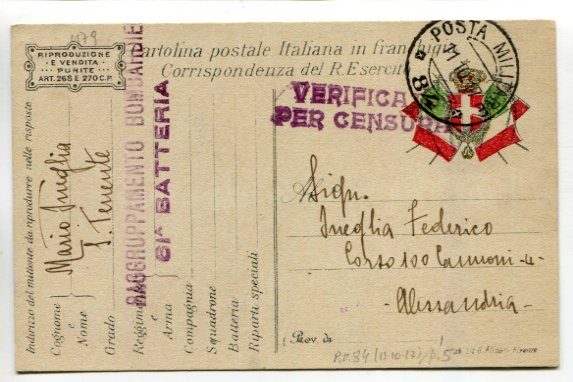 479
RIPRODUZIONE
E VENDITA
PUNITE
ART. 268 E 270 C.P.
Cartolina postale Italiana in franchigia
Corrispondenza del R. Esercito
POSTA MILITARE
VERIFICA
PER CENSURA
RAGGRUPPAMENTO BOMBARDE
61ª BATTERIA
Indirizzo del mittente da riprodurre nelle risposte
Cognome
e
Nome
Mario Ineglia
Grado
S. Tenente
Reggimento
Arma
Compagnia
Squadrone
Batteria
Riparti speciali
Sign.
Ineglia Federico
Corso 100 Cannoni - 4
- Alessandria -
(Prov. di
P.M. 84 (13-10-17) p. 5
Firenze